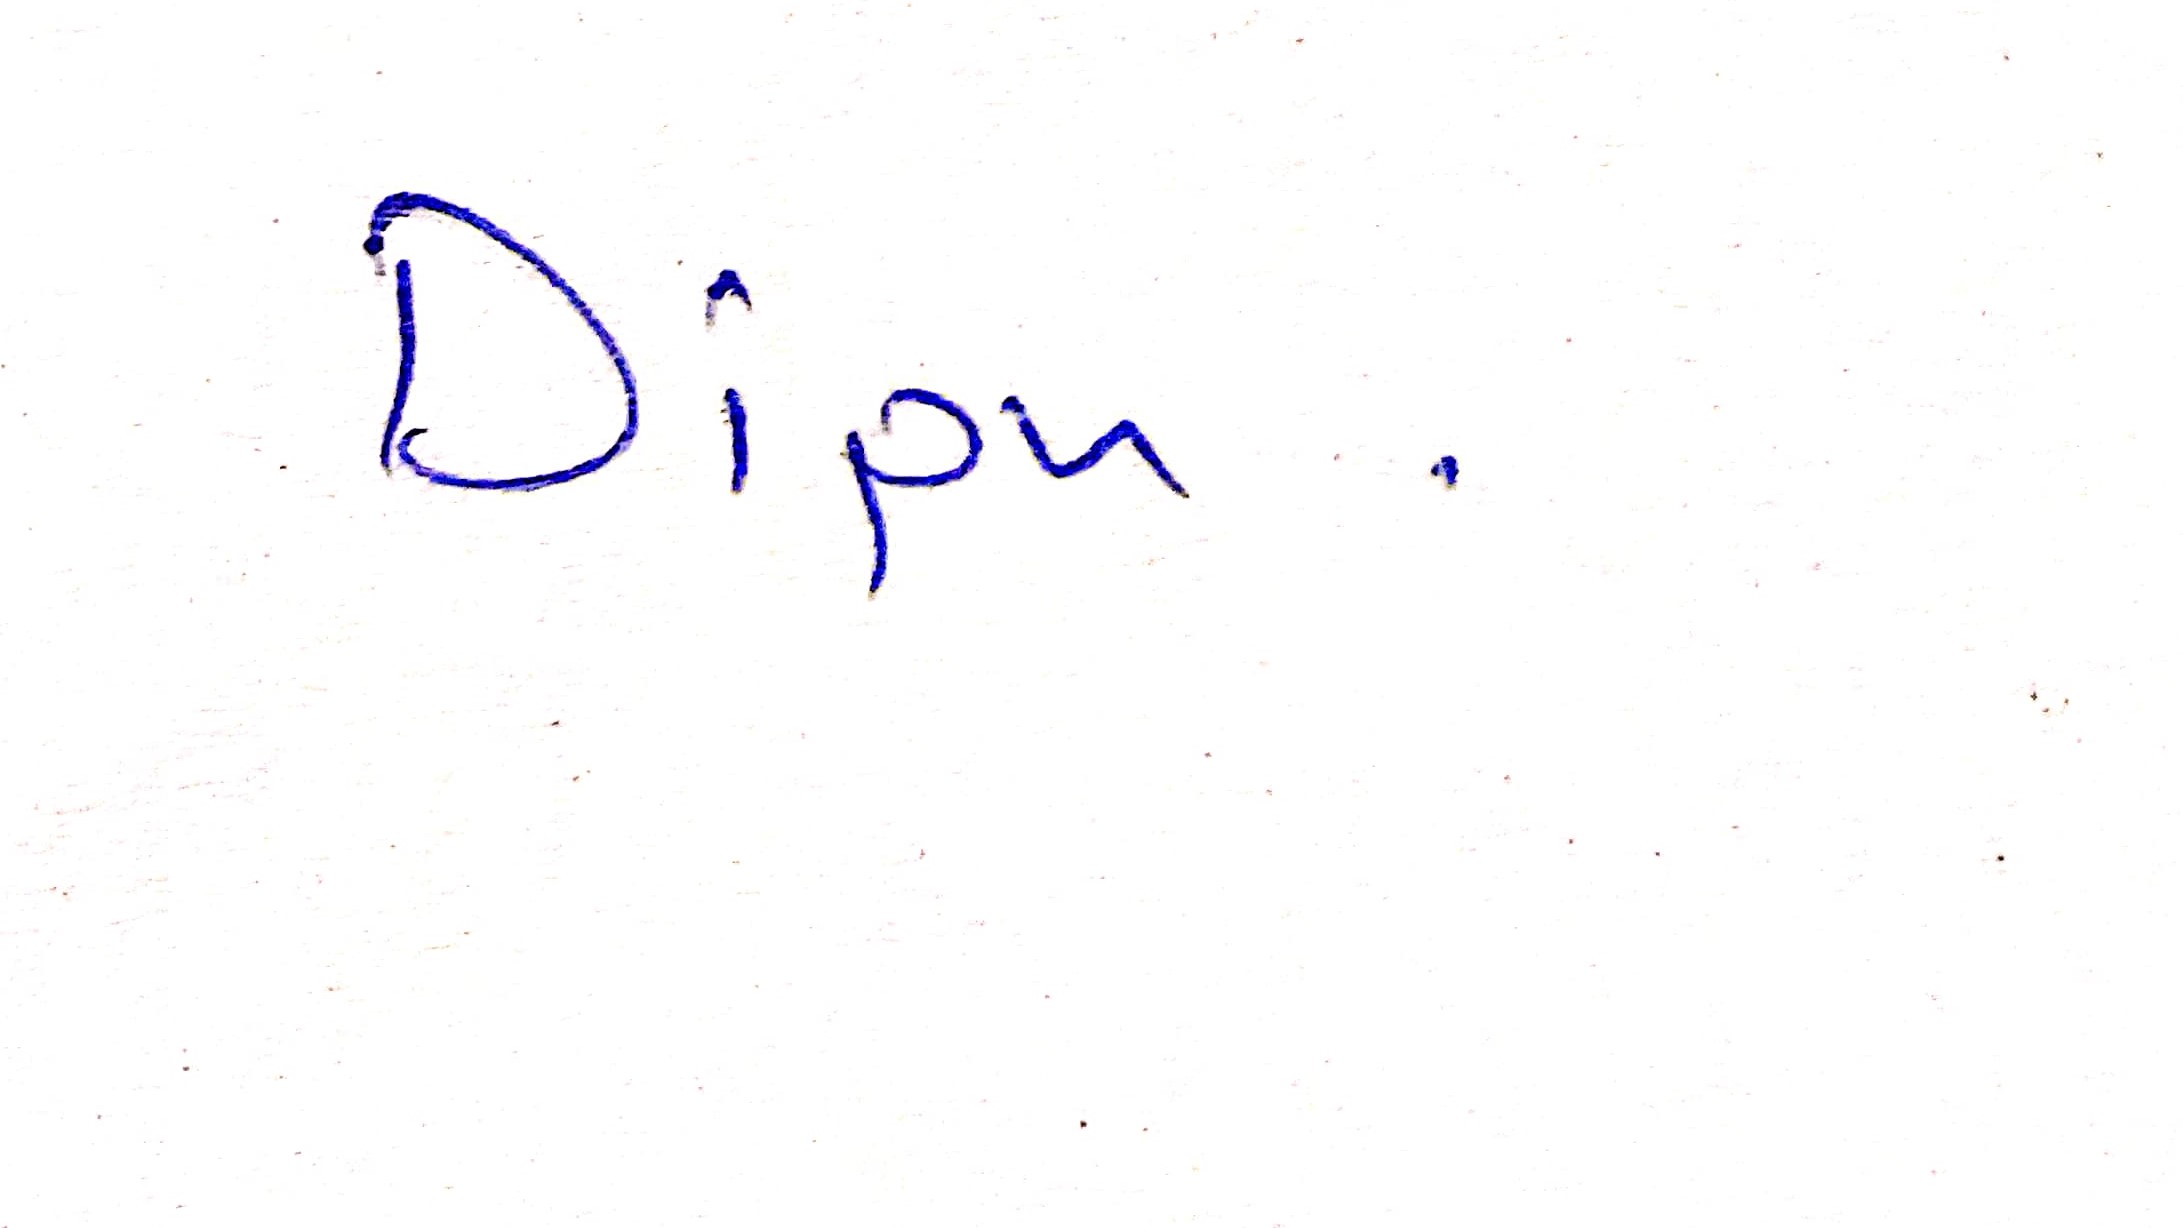 Dipu .